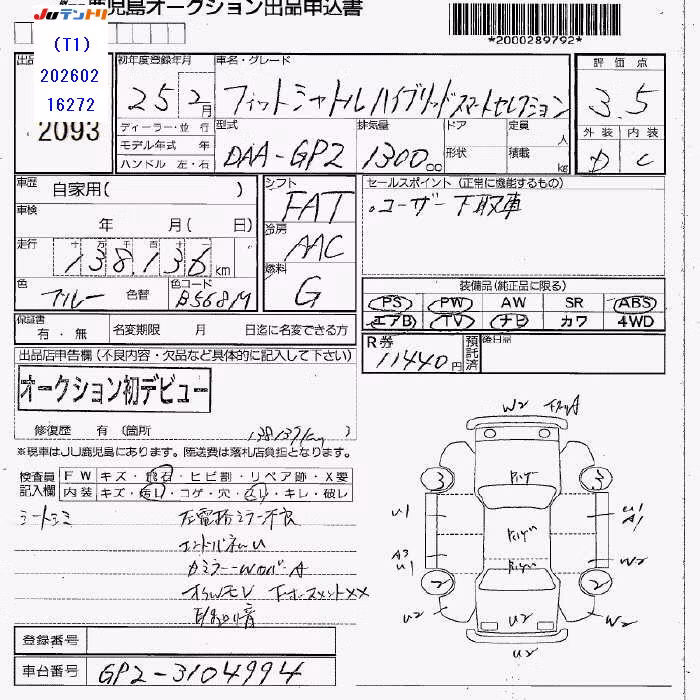 JUテントリ
鹿児島オークション出品申込書
*2000289792*
(T1)
202602
16272
2093
初年度登録年月
25 2月
車名・グレード
フィットシャトルハイブリッドスマートセレクション
評価点
3.5
外装 内装
D C
ディーラー・並行
モデル年式 年
ハンドル 左・右
型式
DAA-GP2
排気量
1300cc
ドア
形状
定員 人
積載 kg
車歴 自家用( )
車検 年 月( 日)
走行 十万千百十一
138,136km
色 ブルー 色替
色コード B568M
シフト
FAT
冷房
AAC
燃料
G
セールスポイント(正常に機能するもの)
。ユーザー下取車
装備品(純正品に限る)
PS PW AW SR ABS
エアB TV ナビ カワ 4WD
保証書 有・無
名変期限 月 日迄に名変できる方
R券 11440円
預託済
後日品
出品店申告欄(不良内容・欠品など具体的に記入して下さい)
オークション初デビュー
修復歴 有(箇所 )
138137km
※現車はJU鹿児島にあります。陸送費は落札店負担となります。
検査員記入欄
FW キズ・飛石・ヒビ割・リペア跡・X要
内装 キズ・汚レ・コゲ・穴・スレ・キレ・破レ
シートシミ
左電格ミラー不良
エンドパネルU
W2
3 3
U1
U1
A1
A3
U1
W2
2 2
U2
U2
W2
U2
登録番号
車台番号 GP2-3104994